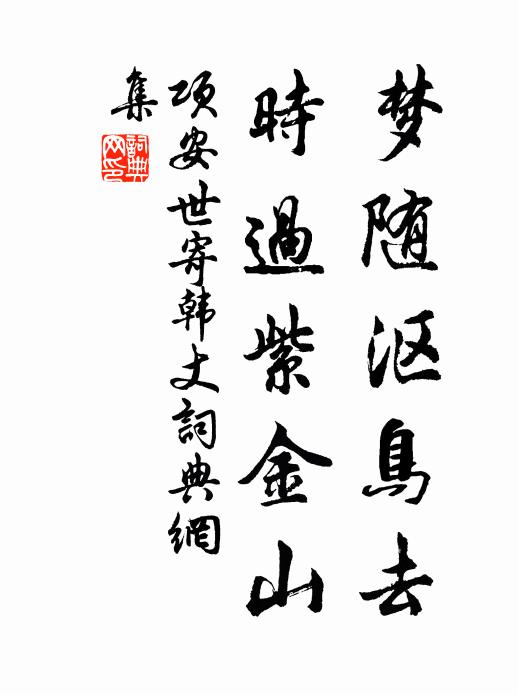 梦随沤鳥去
時過紫金山
项安世寄韩丈詞典網
集
詞典
网印